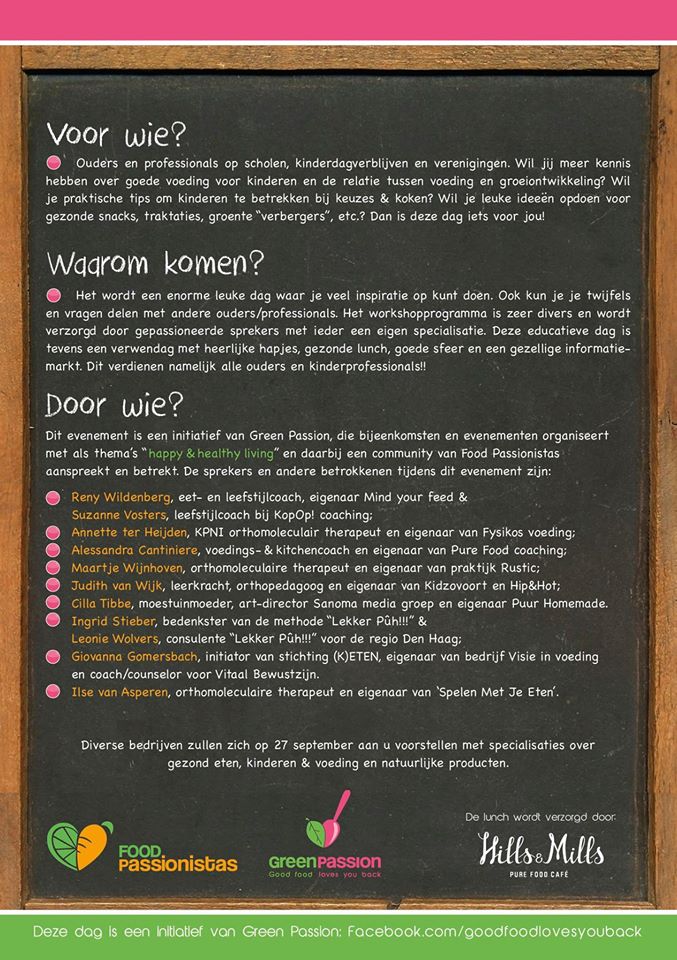 Voor wie?
Ouders en professionals op scholen, kinderdagverblijven en verenigingen. Wil jij meer kennis
hebben over goede voeding voor kinderen en de relatie tussen voeding en groeiontwikkeling? Wil
je praktische tips om kinderen te betrekken bij keuzes & koken? Wil je leuke ideeën opdoen voor
gezonde snacks, traktaties, groente “verbergers”, etc.? Dan is deze dag iets voor jou!
Waarom komen?
Het wordt een enorme leuke dag waar je veel inspiratie op kunt doen. Ook kun je je twijfels
en vragen delen met andere ouders/professionals. Het workshopprogramma is zeer divers en wordt
verzorgd door gepassioneerde sprekers met ieder een eigen specialisatie. Deze educatieve dag is
tevens een verwendag met heerlijke hapjes, gezonde lunch, goede sfeer en een gezellige informatie-
markt. Dit verdienen namelijk alle ouders en kinderprofessionals!!
Door wie?
Dit evenement is een initiatief van Green Passion, die bijeenkomsten en evenementen organiseert
met als thema's “happy & healthy living” en daarbij een community van Food Passionistas
aanspreekt en betrekt. De sprekers en andere betrokkenen tijdens dit evenement zijn:
Reny Wildenberg, eet- en leefstijlcoach, eigenaar Mind your feed &
Suzanne Vosters, leefstijlcoach bij KopOp! coaching;
Annette ter Heijden, KPNI orthomoleculair therapeut en eigenaar van Fysikos voeding;
Alessandra Cantiniere, voedings- & kitchencoach en eigenaar van Pure Food coaching;
Maartje Wijnhoven, orthomoleculaire therapeut en eigenaar van praktijk Rustic;
Judith van Wijk, leerkracht, orthopedagoog en eigenaar van Kidzovoort en Hip&Hot;
Cilla Tibbe, moestuinmoeder, art-director Sanoma media groep en eigenaar Puur Homemade.
Ingrid Stieber, bedenkster van de methode “Lekker Pûh!!!” &
Leonie Wolvers, consulente “Lekker Pûh!!!” voor de regio Den Haag;
Giovanna Gomersbach, initiator van stichting (K)ETEN, eigenaar van bedrijf Visie in voeding
en coach/counselor voor Vitaal Bewustzijn.
Ilse van Asperen, orthomoleculaire therapeut en eigenaar van ‘Spelen Met Je Eten’.
Diverse bedrijven zullen zich op 27 september aan u voorstellen met specialisaties over
gezond eten, kinderen & voeding en natuurlijke producten.
De lunch wordt verzorgd door:
FOOD
PASSIONISTAS
GreenPASSION
Good food loves you back
Hills & Mills
PURE FOOD CAFÉ
Deze dag is een initiatief van Green Passion: Facebook.com/goodfoodlovesyouback